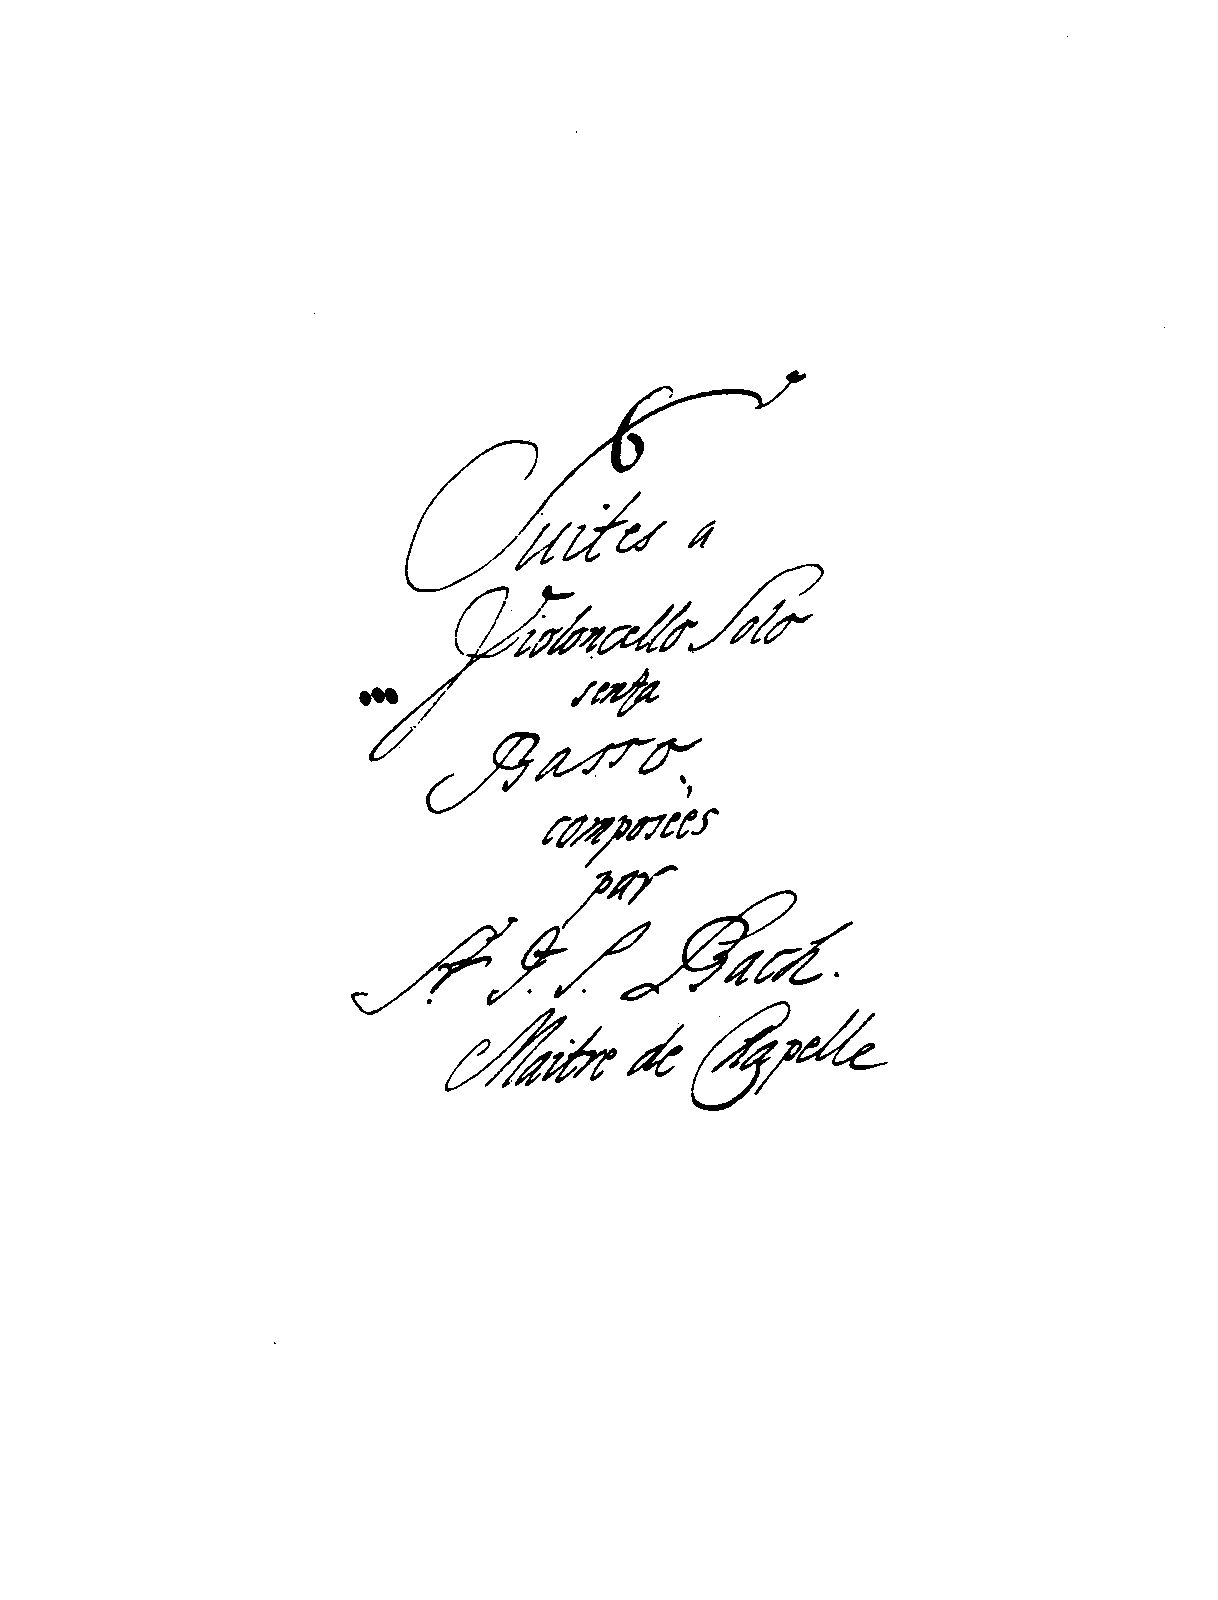 6
Suites a
Violoncello Solo
senza
Basso.
composées
par
Sr. J. S. Bach.
Maitre de Chapelle